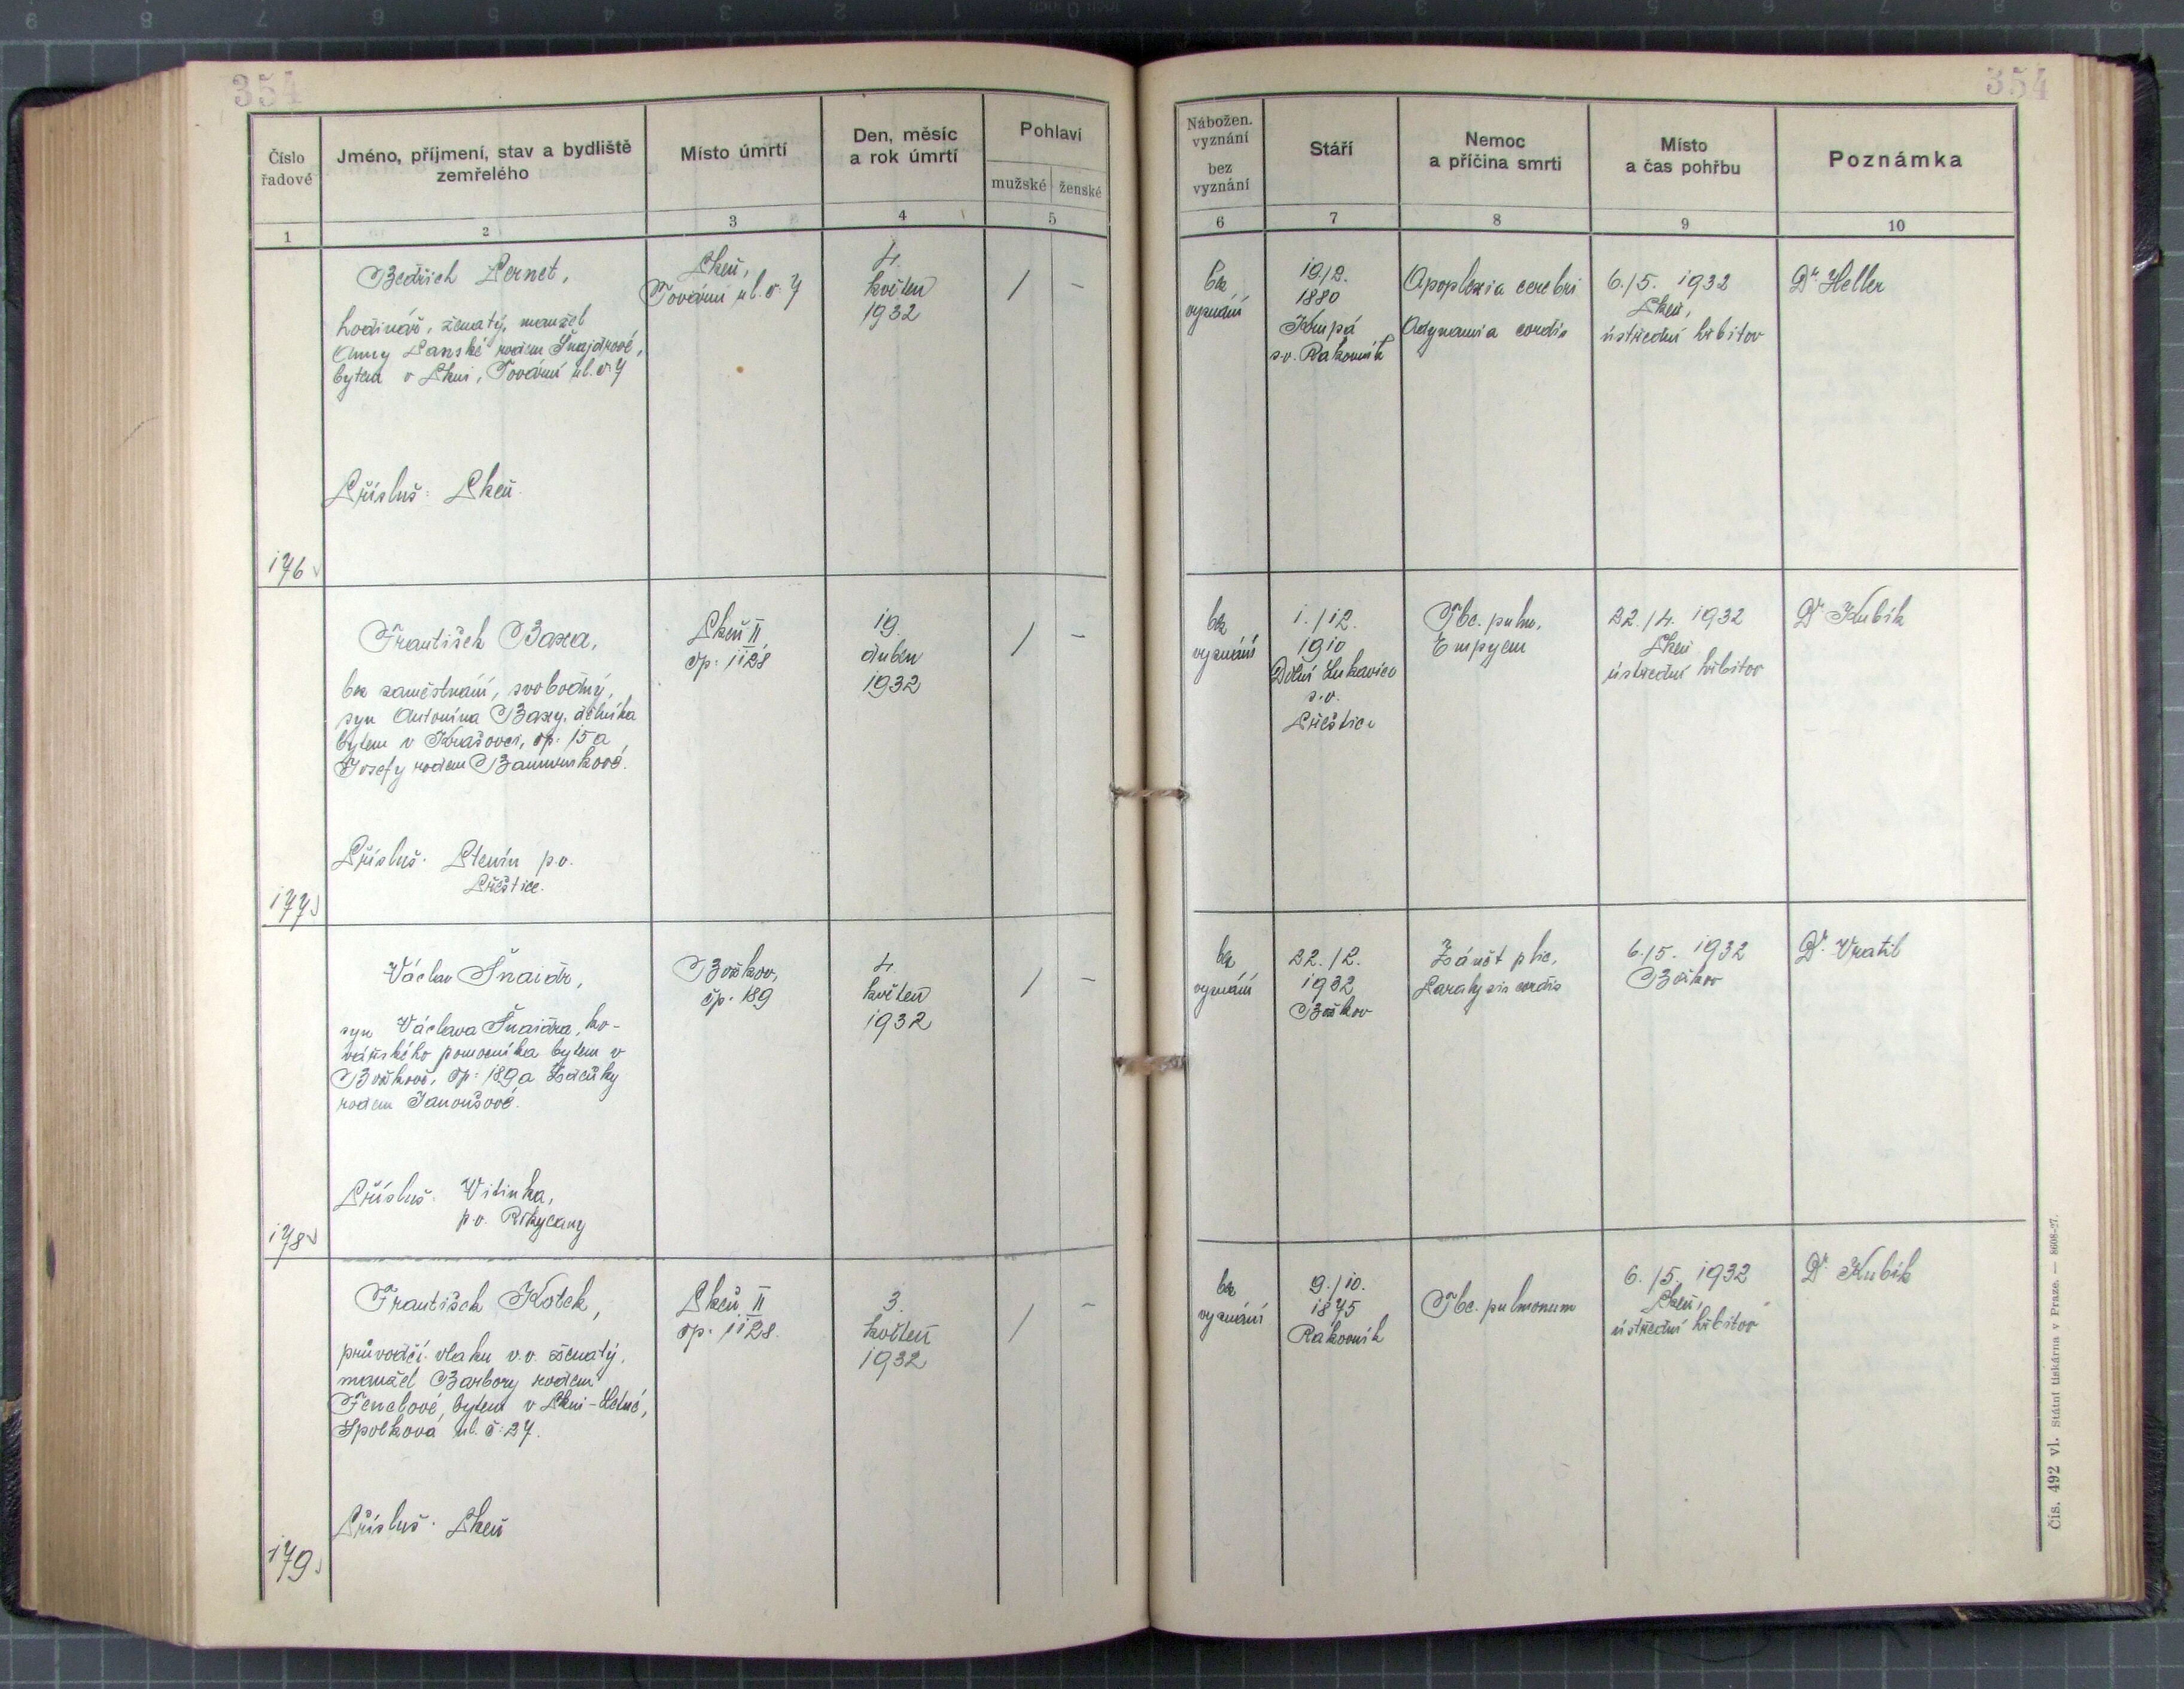 354
354
Číslo řadové
Jméno, příjmení, stav a bydliště zemřelého
Místo úmrtí
Den, měsíc a rok úmrtí
Pohlaví
mužské ženské
Nábožen. vyznání
bez vyznání
Stáří
Nemoc a příčina smrti
Místo a čas pohřbu
Poznámka
1 2 3 4 5 6 7 8 9 10
176
Bedřich Pernet,
hodinář, ženatý, manžel
Anny Panské rodem Šnajdrové,
bytem v Plzni, Tovární ul. č. 7
Přísluš: Plzeň.
Plzeň,
Tovární ul. č. 7
4.
květen
1932
/ -
bez
vyznání
19./2.
1880
Krupá
s.o. Rakovník
Apoplexia cerebri
Adynamia cordis
6./5. 1932
Plzeň,
ústřední hřbitov
Dr Heller
177
František Baxa,
bez zaměstnání, svobodný,
syn Antonína Baxy, dělníka
bytem v Krašovci, čp. 15 a
Josefy rodem
Přísluš. Ptenín p.o.
Přeštice.
Plzeň II
čp. 1128
19.
duben
1932
/ -
bez
vyznání
1./12.
1910
Dolní Lukavice
s.o.
Přeštice
Tbc. pulm.
Empyem
22./4. 1932
Plzeň
ústřední hřbitov
Dr. Kubík
178
Václav Šnaidr,
syn Václava Šnaidra, ko-
vářského pomocníka bytem v
Božkově, čp. 189 a Zdeňky
rodem Janoušové.
Přísluš. Vitinka,
p.o. Rokycany
Božkov,
čp. 189
4.
květen
1932
/ -
bez
vyznání
22./2.
1932
Božkov
Zánět plic,
Paralysis cordis
6./5. 1932
Božkov
Dr. Vratil
179
František Kotek,
průvodčí vlaku v.v. ženatý,
manžel Barbory rodem
Fenclové, bytem v Plzni-Letné,
Spolková ul. č. 27.
Přísluš. Plzeň
Plzeň II
čp. 1128.
3.
květen
1932
/ -
bez
vyznání
9./10.
1875
Rakovník
Tbc. pulmonum
6./5. 1932
Plzeň,
ústřední hřbitov
Dr. Kubík
Čís. 492 vl. Státní tiskárna v Praze. — 8608-27.